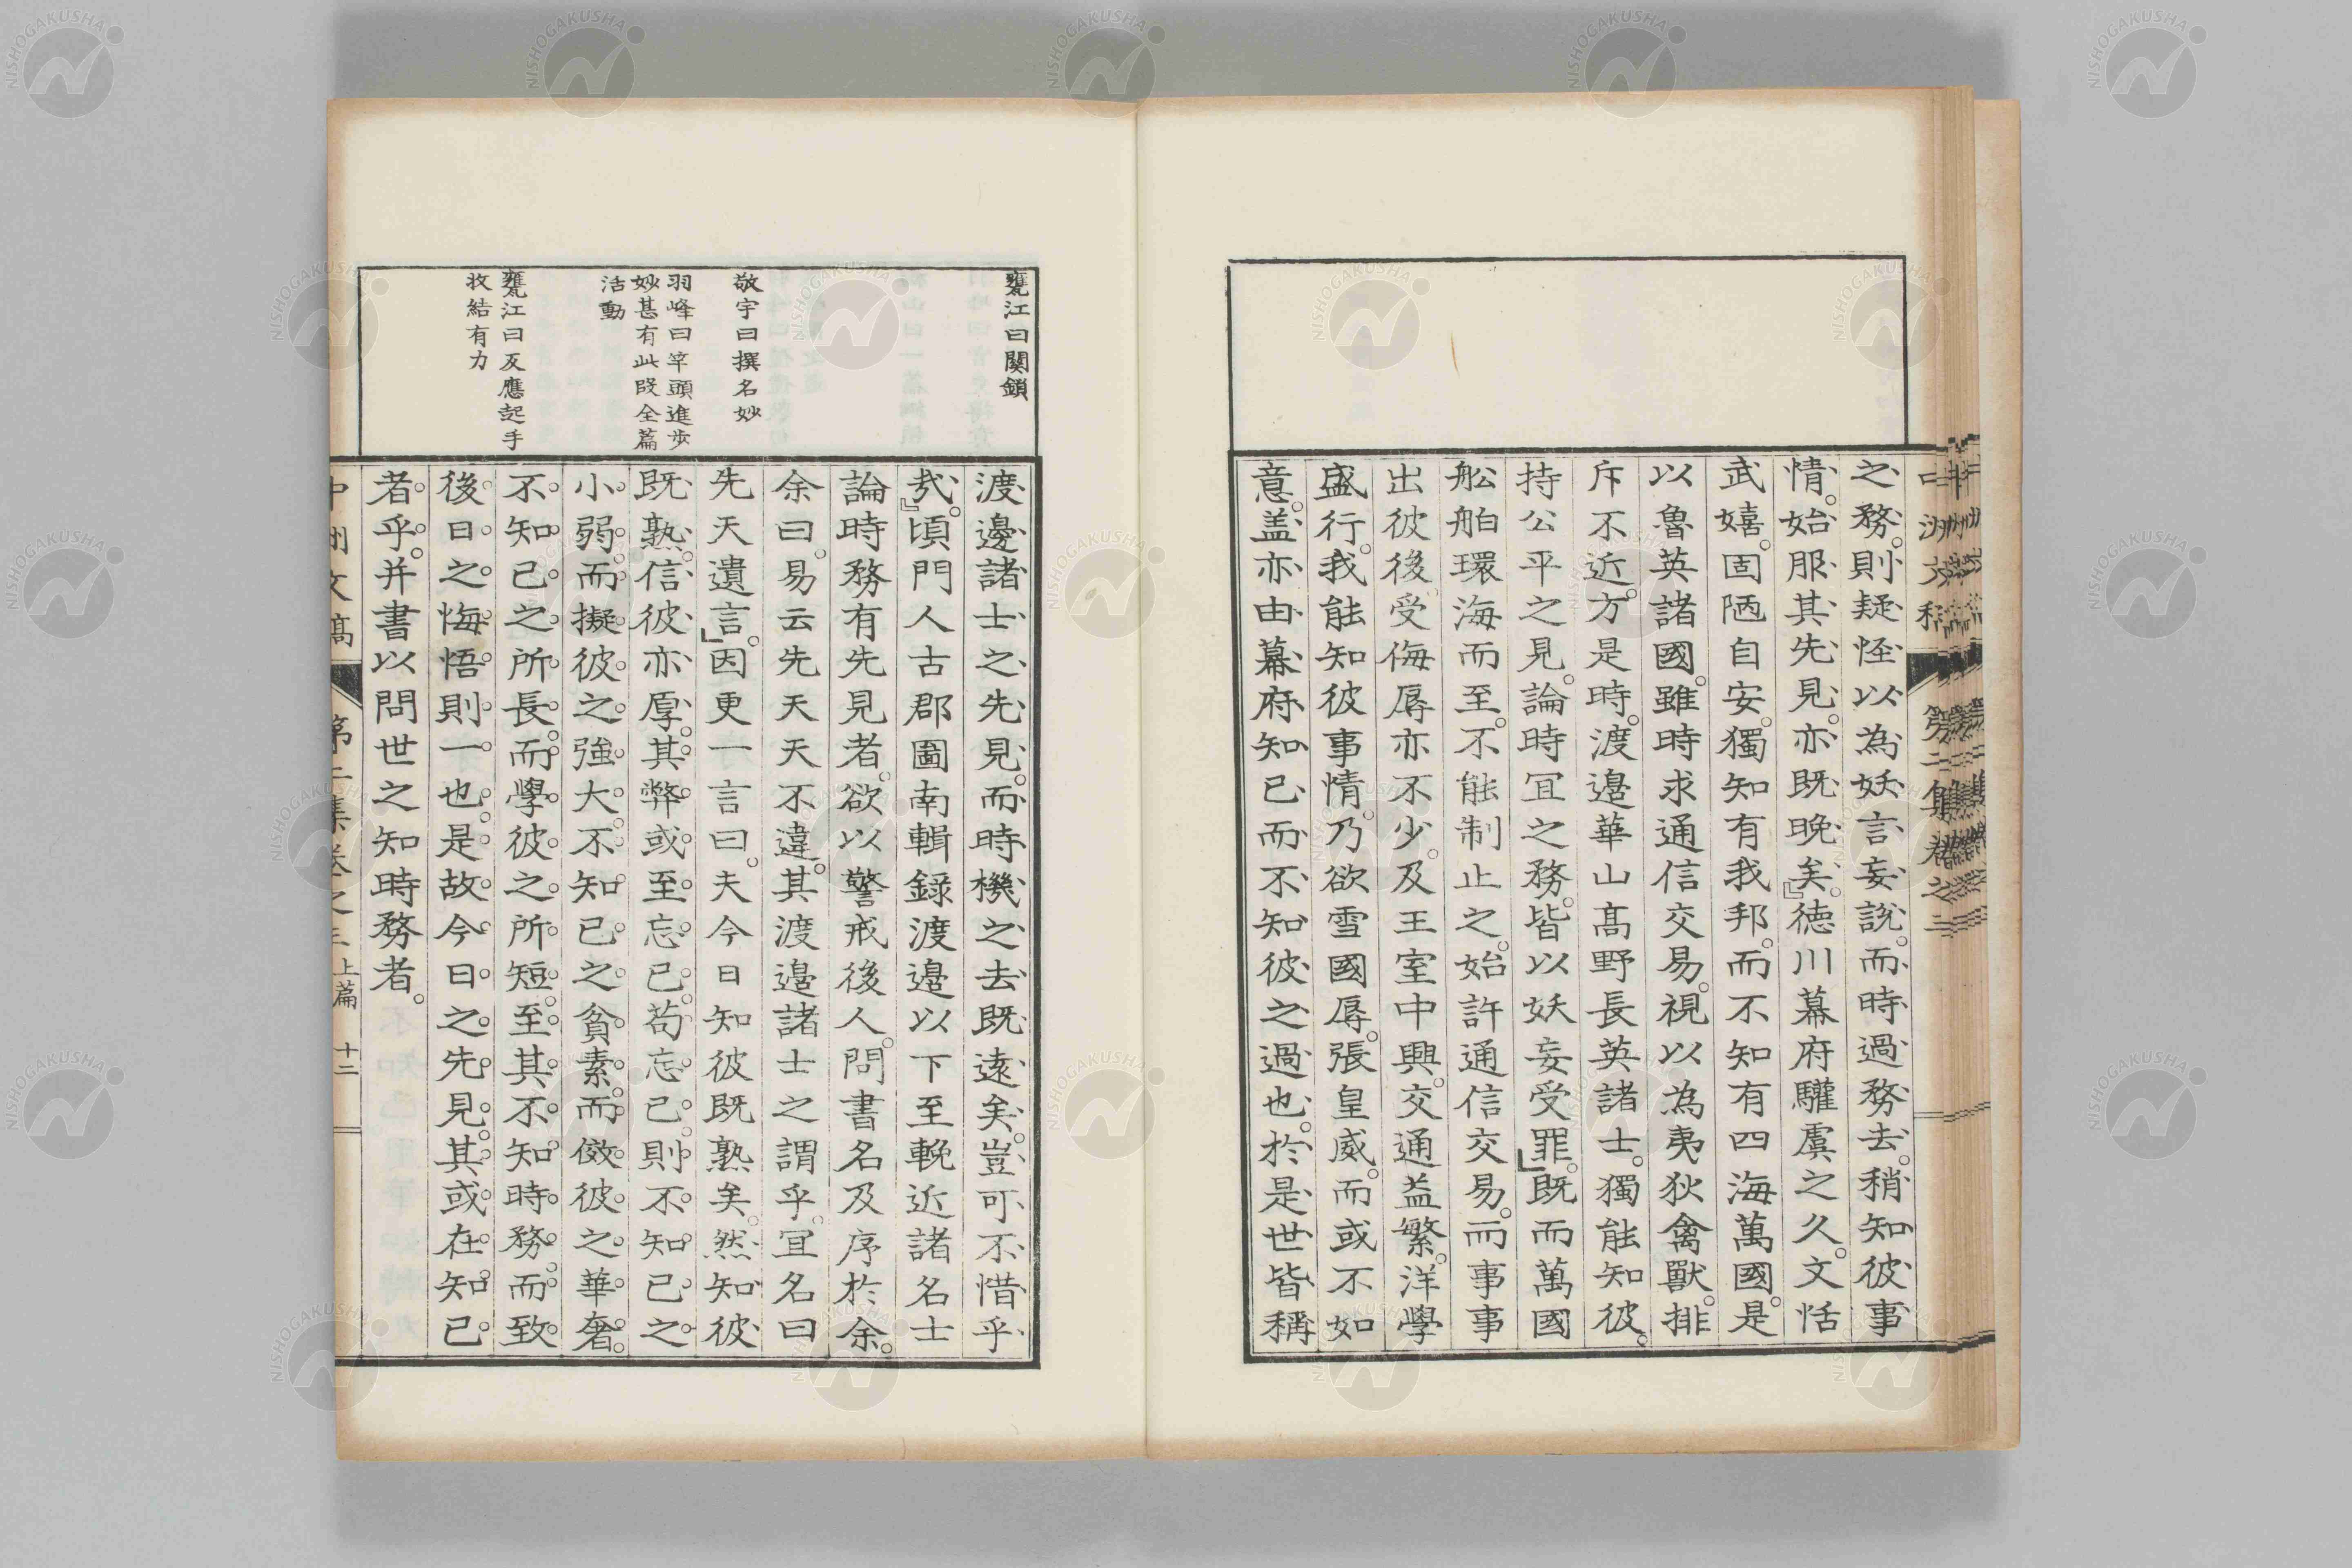 之務。則疑怪以為妖言妄說。而時過務去。稍知彼事
情。始服其先見。亦既晚矣。』德川幕府驩虞之久。文恬
武嬉。固陋自安。獨知有我邦。而不知有四海萬國。是
以魯英諸國。雖時求通信交易。視以為夷狄禽獸。排
斥不近。方是時。渡邉華山高野長英諸士。獨能知彼。
持公平之見。論時宜之務。皆以妖妄受罪。』既而萬國
舩舶環海而至。不能制止之。始許通信交易。而事事
出彼後。受侮辱亦不少。及王室中興。交通益繁。洋學
盛行。我能知彼事情。乃欲雪國辱。張皇威。而或不如
意。盖亦由幕府知己而不知彼之過也。於是世皆稱
渡邊諸士之先見。而時機之去既遠矣。豈可不惜乎
㢤。』頃門人古郡圖南輯錄渡邉以下至輓近諸名士
論時務有先見者。欲以警戒後人。問書名及序於余。
余曰。易云先天天不違。其渡邉諸士之謂乎。宜名曰
先天遺言。』因更一言曰。夫今日知彼既熟矣。然知彼
既熟。信彼亦厚。其弊或至忘己。苟忘己。則不知己之
小弱。而擬彼之強大。不知己之貧素。而傚彼之華奢。
不知己之所長。而學彼之所短。至其不知時務。而致
後日之悔悟則一也。是故今日之先見。其或在知己
者乎。并書以問世之知時務者。
甕江曰關鎖
敬宇曰撰名妙
羽峰曰竿頭進步
妙甚有此段全篇
活動
甕江曰反應起手
收結有力
中洲文稿 第二集卷之三 上篇 十二